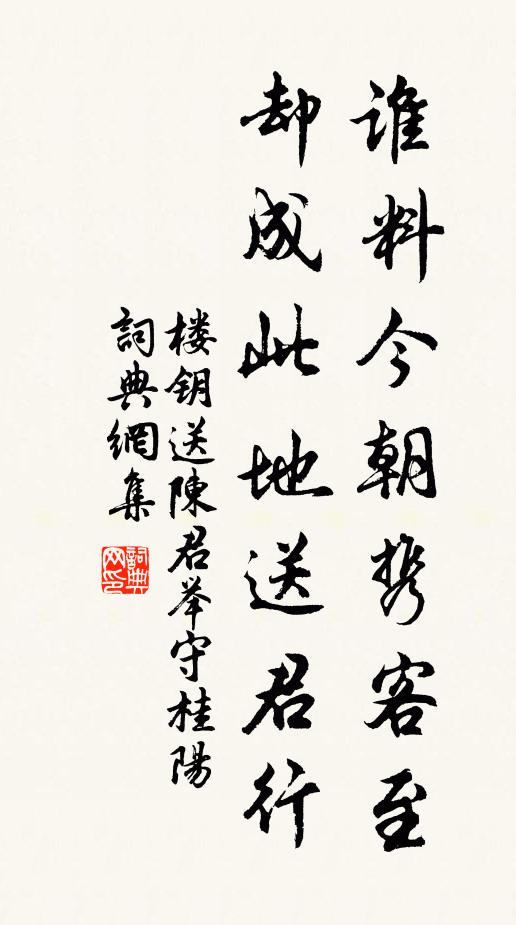 谁料今朝携客至
却成此地送君行
楼钥送陳君举守桂陽
詞典網集
詞典网印